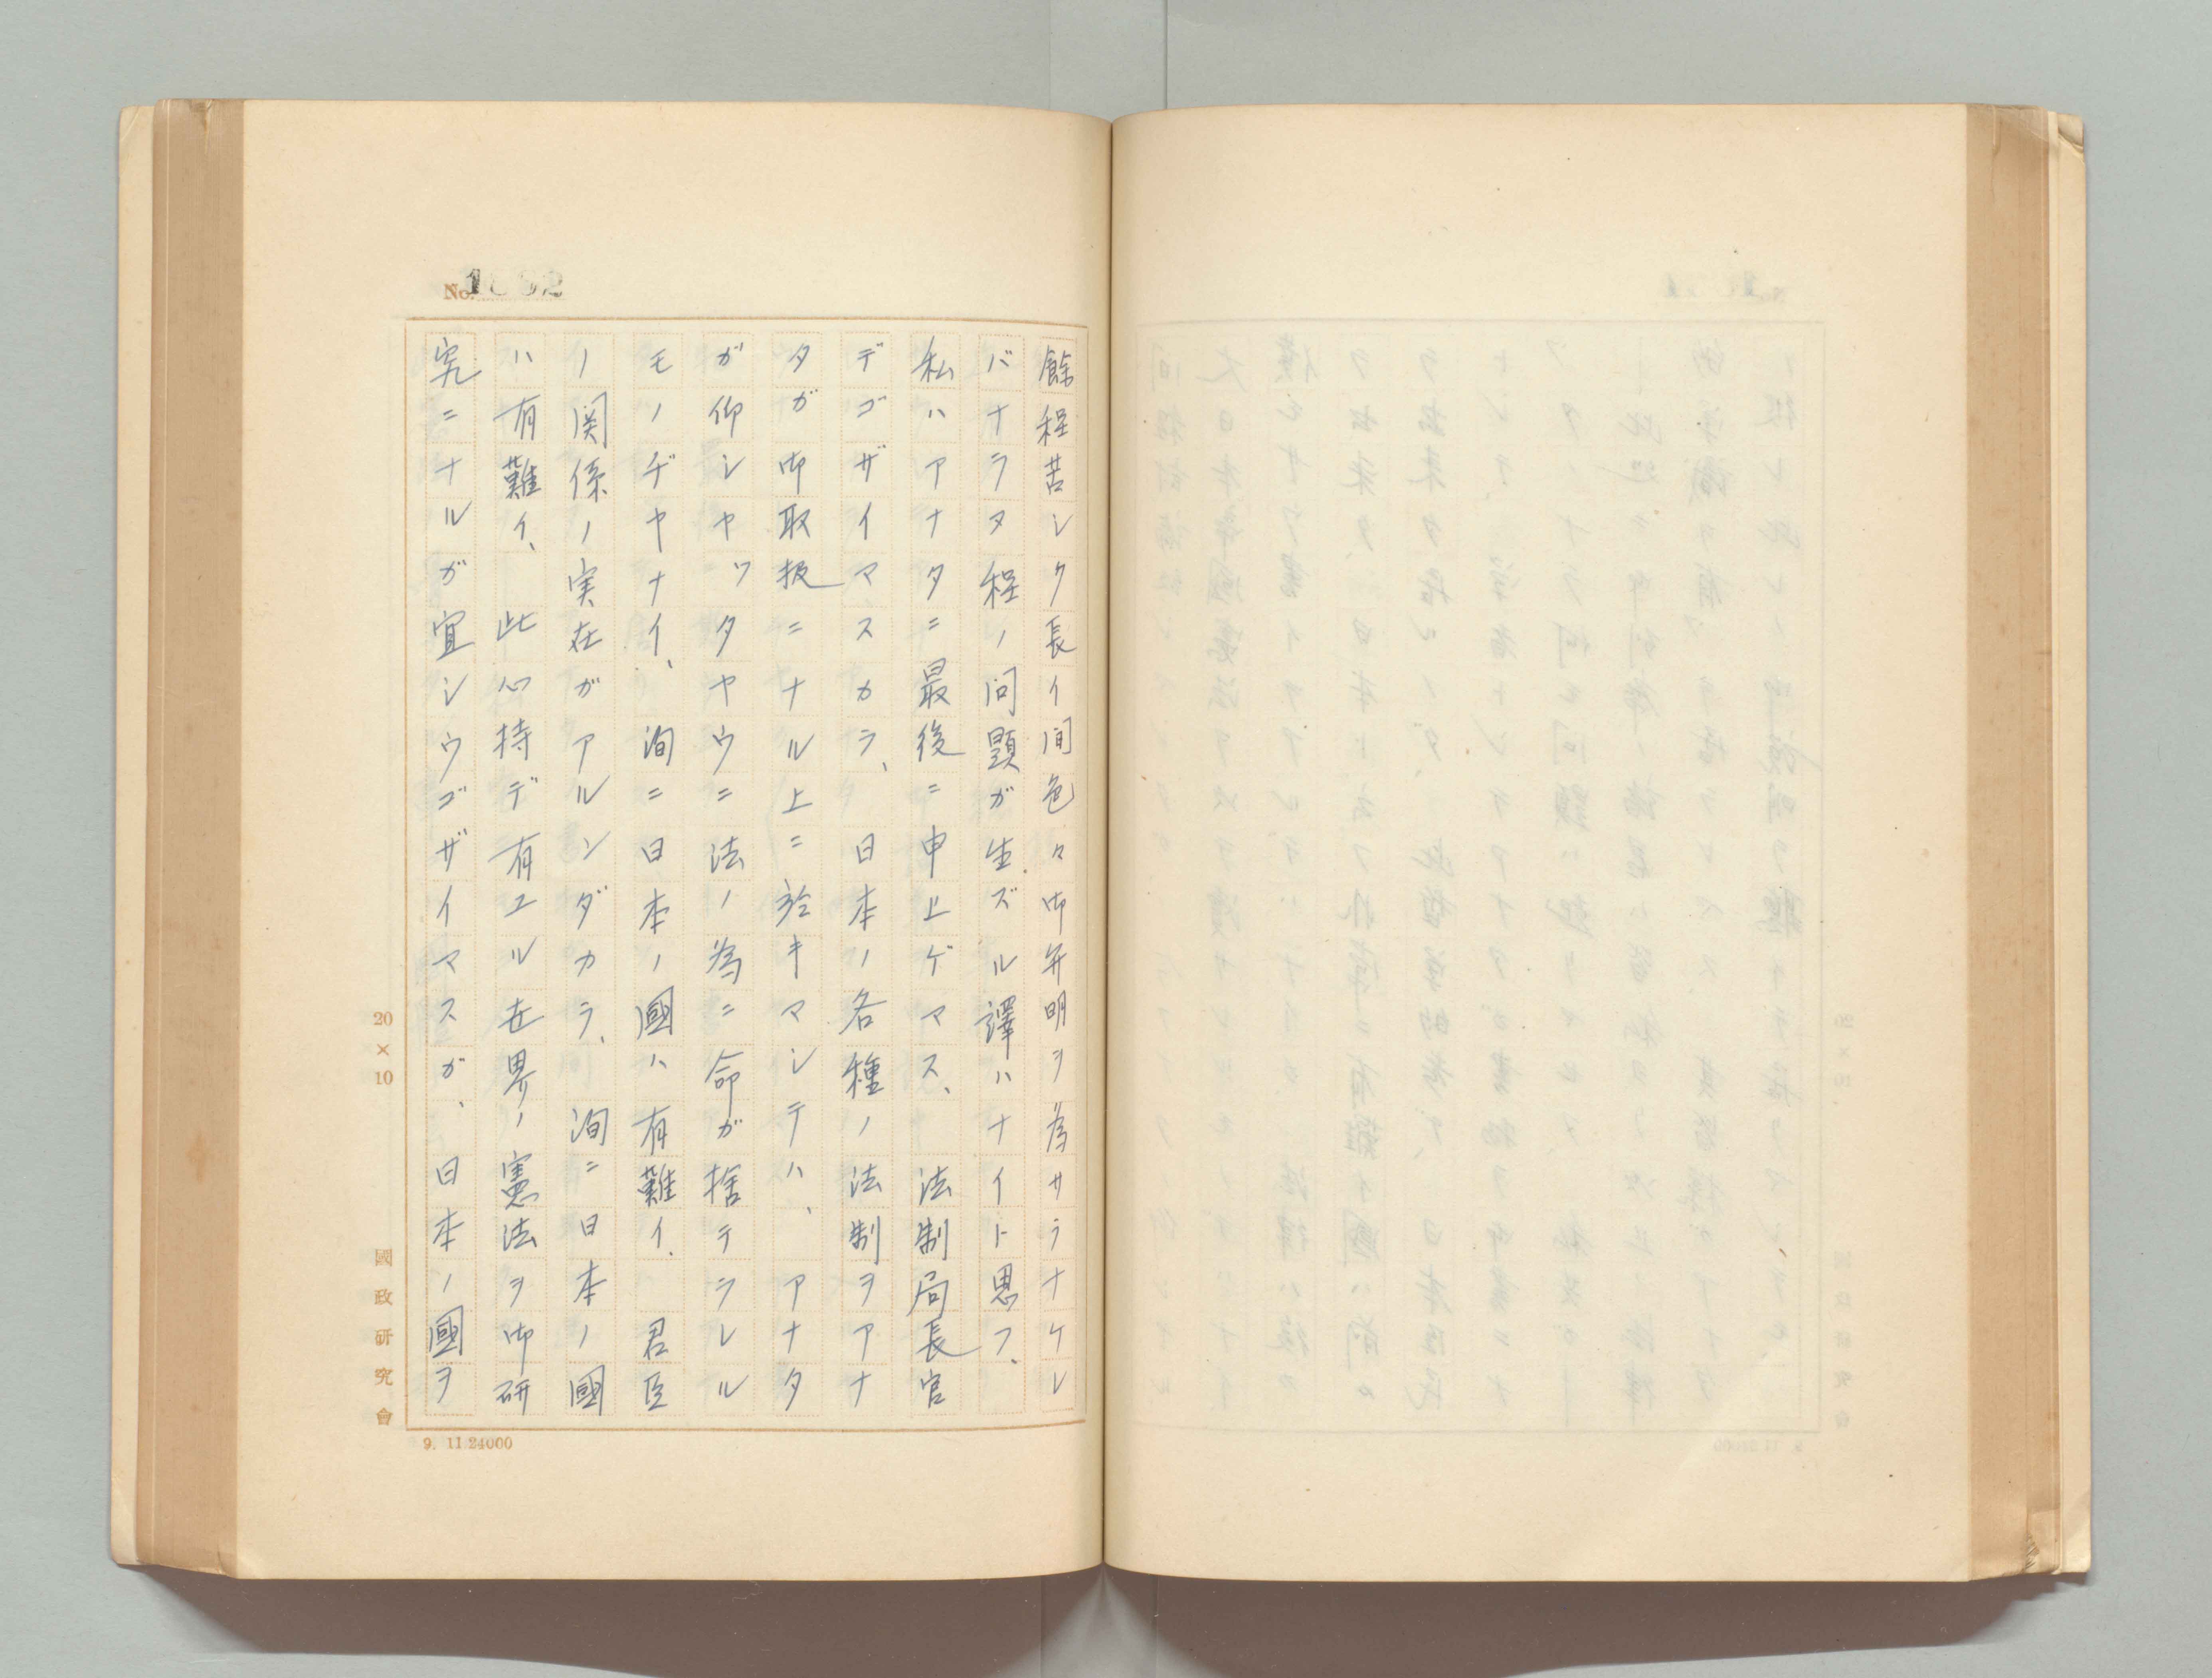 餘程苦シク長イ間色々御弁明ヲ為サラナケレ
バナラヌ程ノ問題ガ生ズル譯ハナイト思フ、
私ハアナタニ最後ニ申上ゲマス、法制局長官
デゴザイマスカラ、日本ノ各種ノ法制ヲアナ
タガ御取扱ニナル上ニ於キマシテハ、アナタ
ガ仰シヤツタヤウニ法ノ為ニ命ガ捨テラレル
モノヂヤナイ、洵ニ日本ノ國ハ有難イ、君臣
ノ関係ノ実在ガアルンダカラ、洵ニ日本ノ國
ハ有難イ、此心持デ有ユル世界ノ憲法ヲ御研
究ニナルガ宜シウゴザイマスガ、日本ノ國ヲ
No.
20×10
國政研究會
9. 11.24000